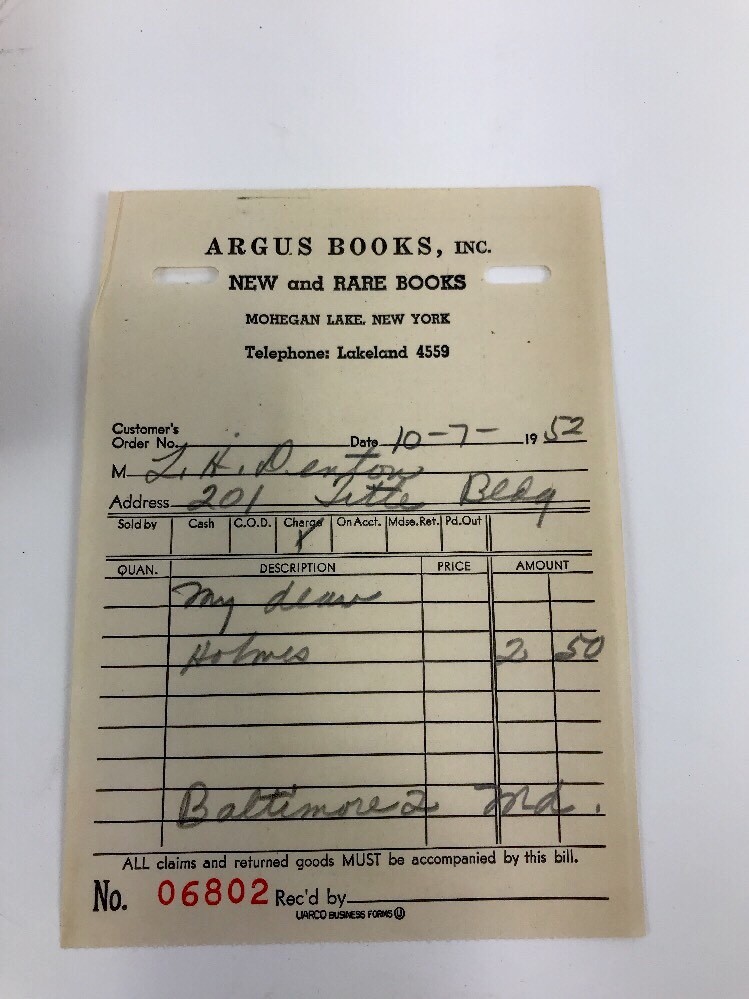 ARGUS BOOKS, INC.
NEW and RARE BOOKS
MOHEGAN LAKE, NEW YORK
Telephone: Lakeland 4559
Customer's
Order No. Date 10-7- 19 52
M L. H. Denton
Address 201 Title Bldg
Sold by Cash C.O.D. Charge On Acct. Mdse. Ret. Pd. Out
QUAN. DESCRIPTION PRICE AMOUNT
My dear
Holmes 2 50
Baltimore 2 Md.
ALL claims and returned goods MUST be accompanied by this bill.
No. 06802 Rec'd by
UARCO BUSINESS FORMS U